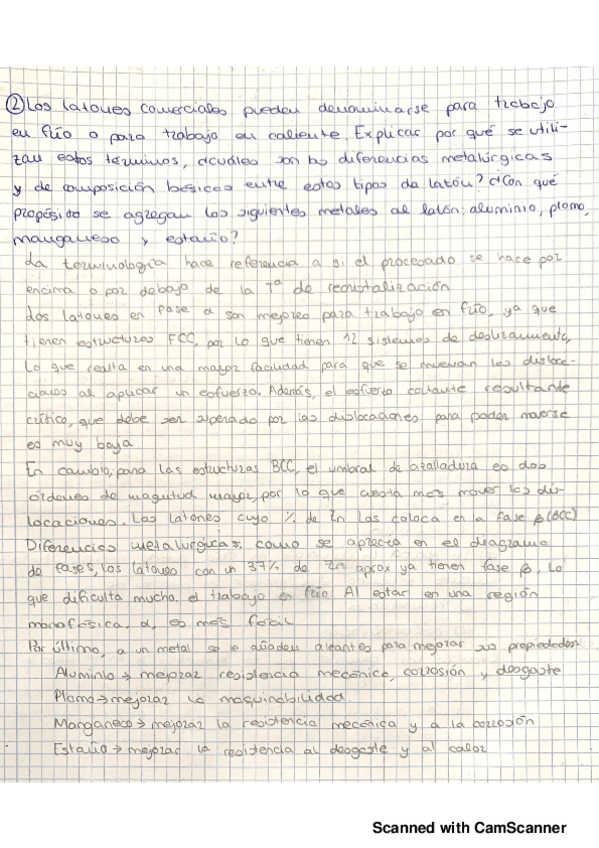 ② Los latones comerciales pueden denominarse para trabajo
en frío o para trabajo en caliente. Explicar por qué se utili-
zan estos términos, ¿cuáles son las diferencias metalúrgicas
y de composición básicas entre estos tipos de latón? ¿Con qué
propósito se agregan los siguientes metales al latón: aluminio, plomo,
manganeso y estaño?
La terminología hace referencia a si el procesado se hace por
encima o por debajo de la Tª de recristalización
Los latones en fase α son mejores para trabajo en frío, ya que
tienen estructuras FCC, por lo que tienen 12 sistemas de deslizamiento,
lo que resulta en una mayor facilidad para que se muevan las disloca-
ciones al aplicar un esfuerzo. Además, el esfuerzo cortante resultante
crítico, que debe ser superado por las dislocaciones para poder moverse
es muy bajo
En cambio, para las estructuras BCC, el umbral de cizalladura es dos
órdenes de magnitud mayor, por lo que cuesta más mover las dis-
locaciones. Los latones cuyo % de Zn los coloca en la fase β (BCC)
Diferencias metalúrgicas: como se aprecia en el diagrama
de fases, los latones con un 37% de Zn aprox ya tienen fase β, lo
que dificulta mucho el trabajo en frío Al estar en una región
monofásica, α, es más fácil
Por último, a un metal se le añaden aleantes para mejorar sus propiedades:
Aluminio → mejorar resistencia mecánica, corrosión y desgaste
Plomo → mejorar la maquinabilidad
Manganeso → mejorar la resistencia mecánica y a la corrosión
Estaño → mejorar la resistencia al desgaste y al calor
Scanned with CamScanner